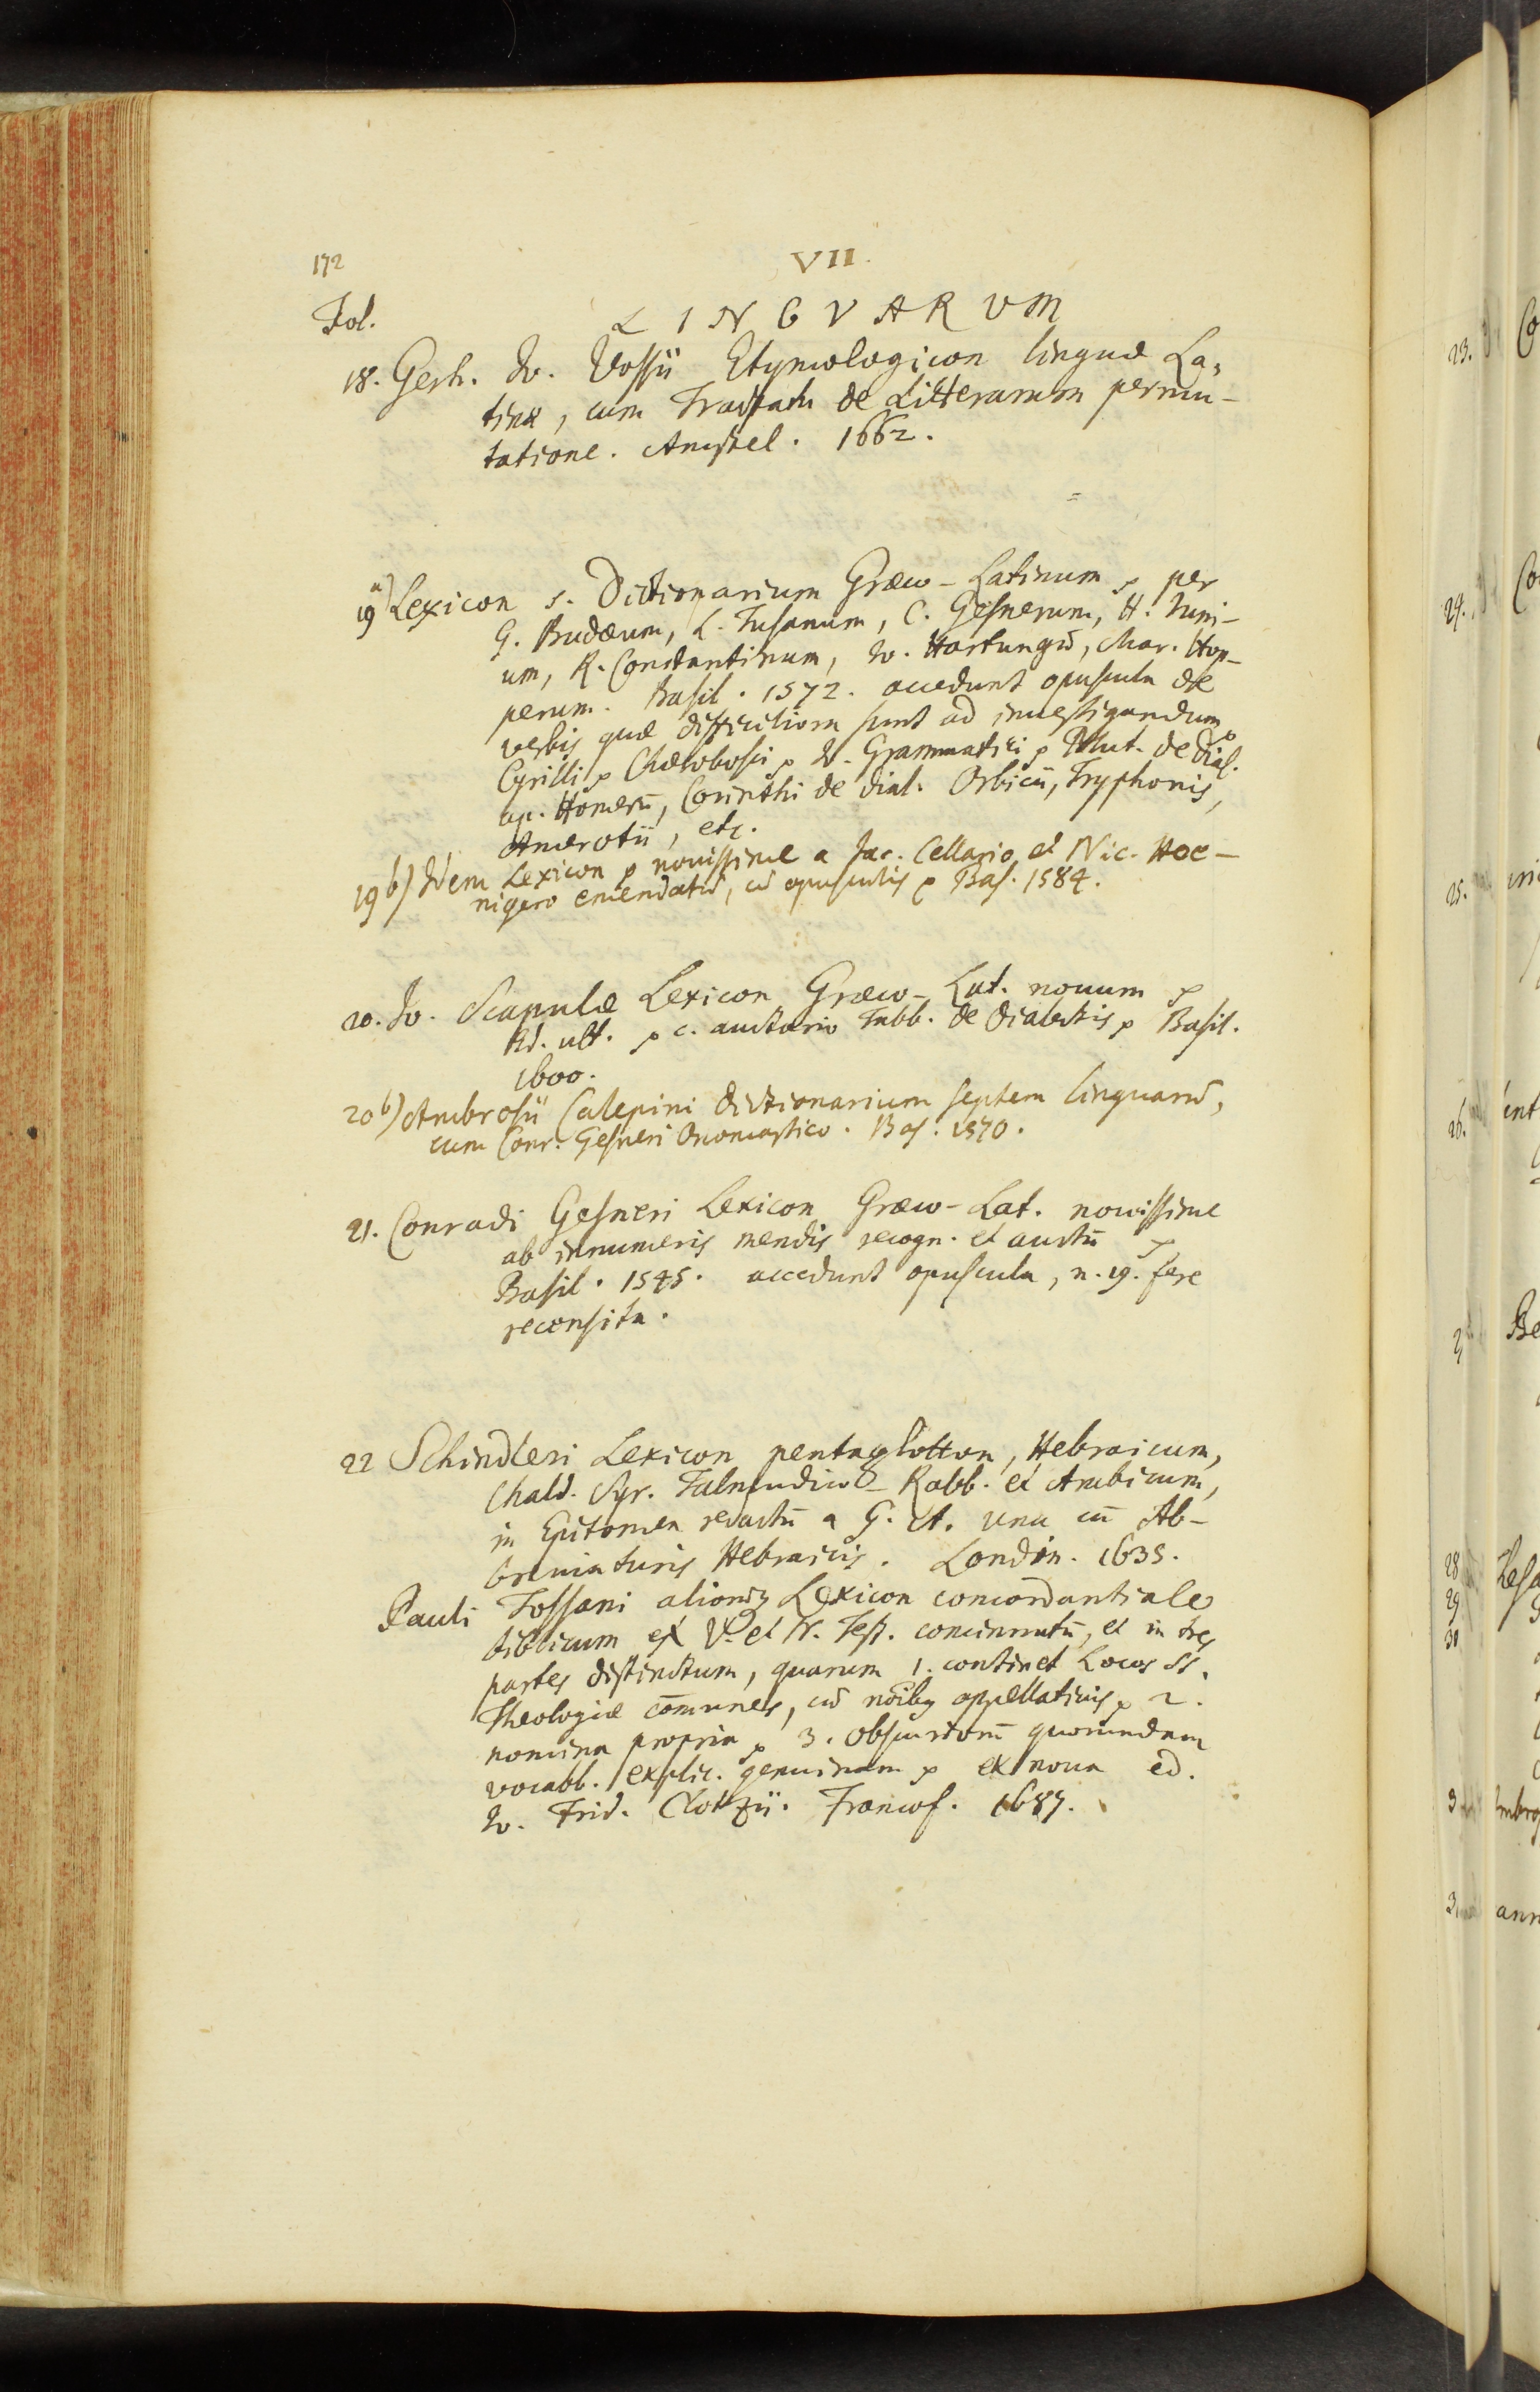 172
VII.
Fol.
LINGVARUM
18. Gerh. Jo. Vossii Etymologicon linguæ La-
tinæ, cum Tractatu de Litterarum permu-
tatione. Amstel. 1662.
19 a) Lexicon s. Dictionarium Græco-Latinum p per
G. Budæum, L. Tusanum, C. Gesnerum, H. Juni-
um, R. Constantinum, Jo. Hartungū, Mar. Hop-
perum. Basil. 1572. accedunt opuscula de
verbis quæ difficiliora sunt ad inuestigandum p
Cyrilli p Chœrobosci p Jo. Grammatici p Plut. de Dial.
ap. Homerū, Corinthi de dial. Orbicii, Tryphonis,
Amerotii, etc.
19 b) Idem Lexicon p nouissime a Jac. Cellario et Nic. Hoe-
nigero emendatū, cū opusculis p Bas. 1584.
20. Jo. Scapulæ Lexicon Græco-Lat. nouum p
Ed. ult. p c. auctario Tabb. de dialectis p Basil.
1600.
20 b) Ambrosii Calepini dictionarium septem linguarū,
cum Conr. Gesneri Onomastico. Bas. 1570.
21. Conradi Gesneri Lexicon Græco-Lat. nouissime
ab innumeris mendis recogn. et auctū p
Basil. 1545. accedunt opuscula, n. 19. fere
recensita.
22 Schindleri Lexicon pentaglotton, Hebraicum,
Chald. Syr. Talmudico-Rabb. et Arabicum,
in Epitomen redactū a G. A. una cū Ab-
breuiaturis Hebraicis. London. 1635.
Pauli Tossani aliorūq Lexicon concordantiale
biblicum ex V. et N. Test. concinnatū, et in tres
partes distinctum, quarum 1. continet Locos SS.
Theologiæ cōmunes, cū nōibq appellatiuis p 2.
nomina propria p 3. obscuriorū quorundam
vocabb. explic. genuinam p ex noua ed.
Jo. Frid. Clotzii. Francof. 1687.
23.
24.
25.
26.
28
29
30